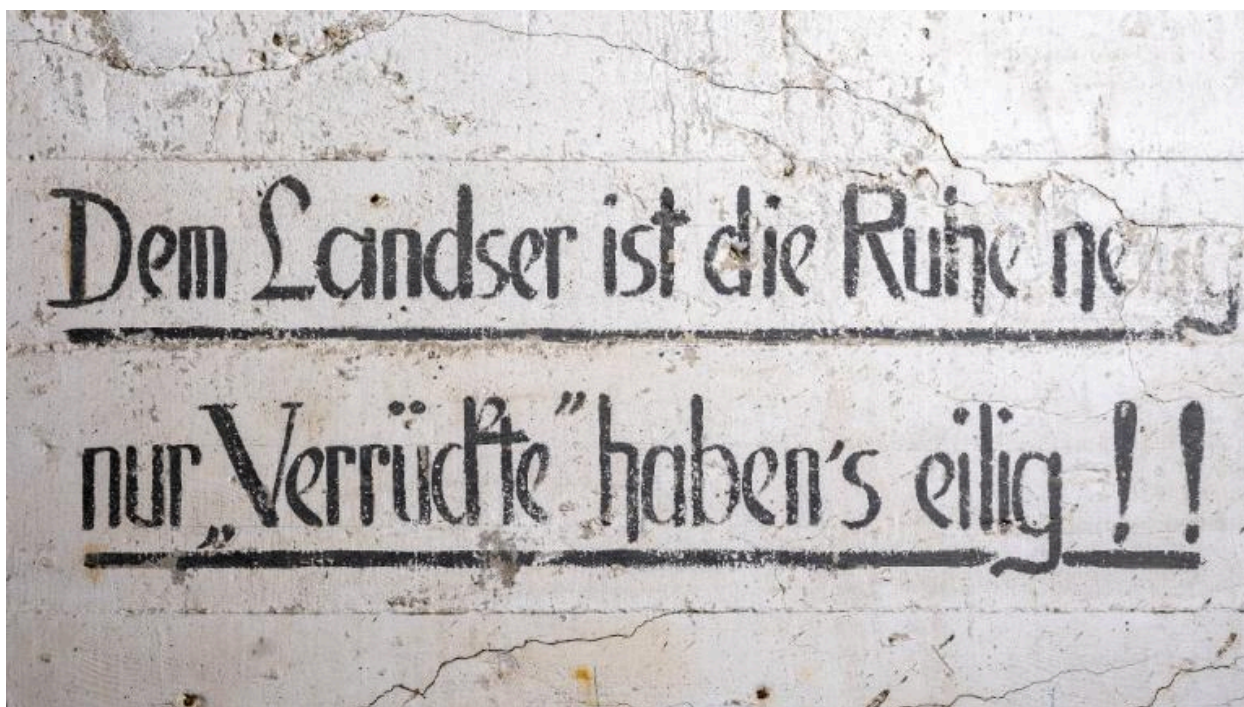 Dem Landser ist die Ruhe heilig
nur „Verrückte" haben's eilig !!